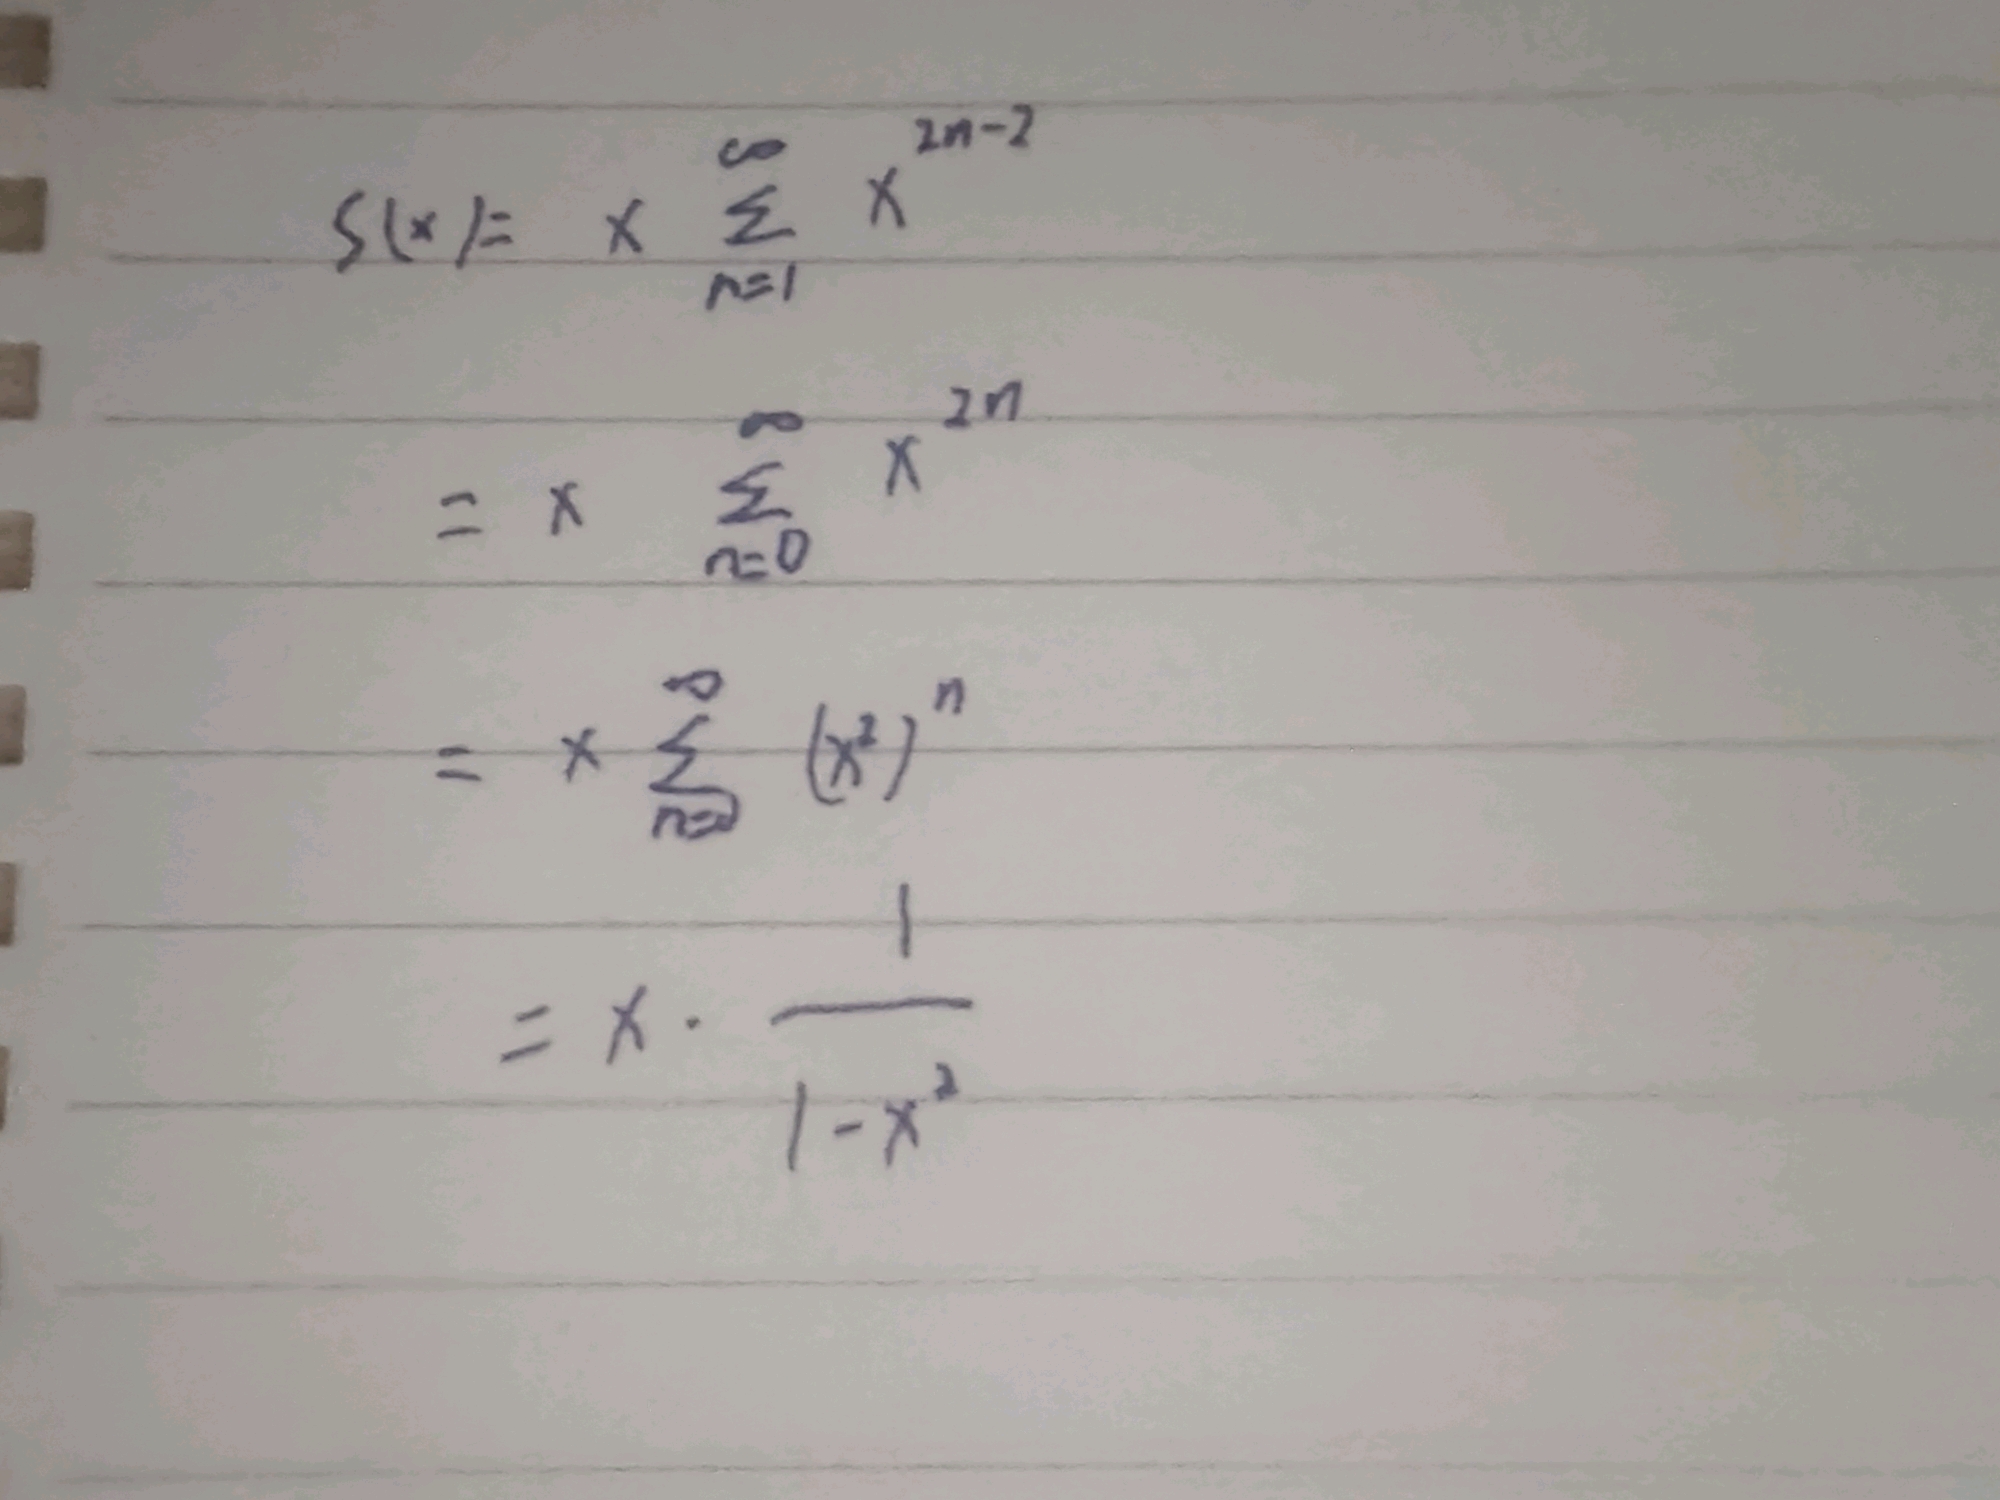 S(x) = x ∑_{n=1}^{∞} x^{2n-2}
= x ∑_{n=0}^{∞} x^{2n}
= x ∑_{n=0}^{∞} (x^2)^n
= x · \frac{1}{1-x^2}